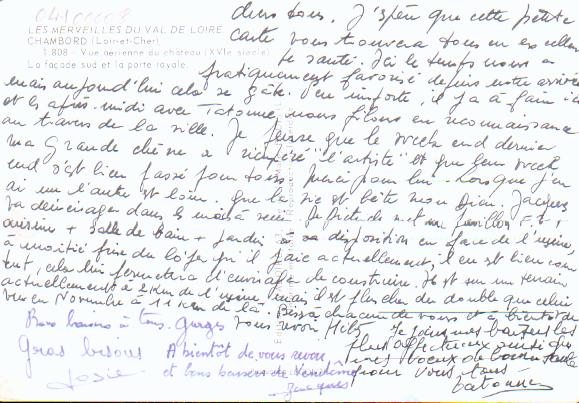 04100008
LES MERVEILLES DU VAL DE LOIRE
CHAMBORD (Loir-et-Cher)
1.808 - Vue aérienne du château (XVIe siècle)
La façade sud et la porte royale.
J'espère que cette petite
carte vous trouvera tous en excellen
te santé. Ici le temps nous a
pratiquement favorisé depuis notre arrivée
mais aujourd'hui cela se gâte. Peu importe, il y a à faire ici
et les après-midi avec Tatanne nous filons en reconnaissance
au travers de la ville. Je pense que le week end dernier
ma Grande chérie a récupéré "l'artiste" et que leur week
end s'est bien passé pour tous merci pour lui. Lorsque j'en
ai un l'autre est loin. Que la vie est bête mon Dieu. Jacques
va déménager dans le mois à venir
cuisine + salle de bain + jardin à sa disposition en face de l'usine,
à moitié prix du loyer qu'il paie actuellement, il en est bien con
tent, cela lui permettra d'envisager de construire. Il est sur un terrain
actuellement à 2 km de l'usine, mais il est plus cher du double que celui
vu en Novembre à 11 km de là. Bises à chacun de vous et à bientôt de
vous revoir
Bons baisers à tous.
Gros bisous
Josie
A bientôt de vous revoir
et bons baisers de Vendôme
Jacques
Je joins mes baisers les
plus affectueux ainsi que
mes voeux de bonne santé
pour vous tous
Tatanne